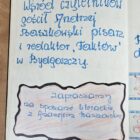 Wśród czytelników
gościł Andrzej
pisarz
i redaktor "Faktów"
w Bydgoszczy.
Zapraszamy
na spotkanie literackie
z